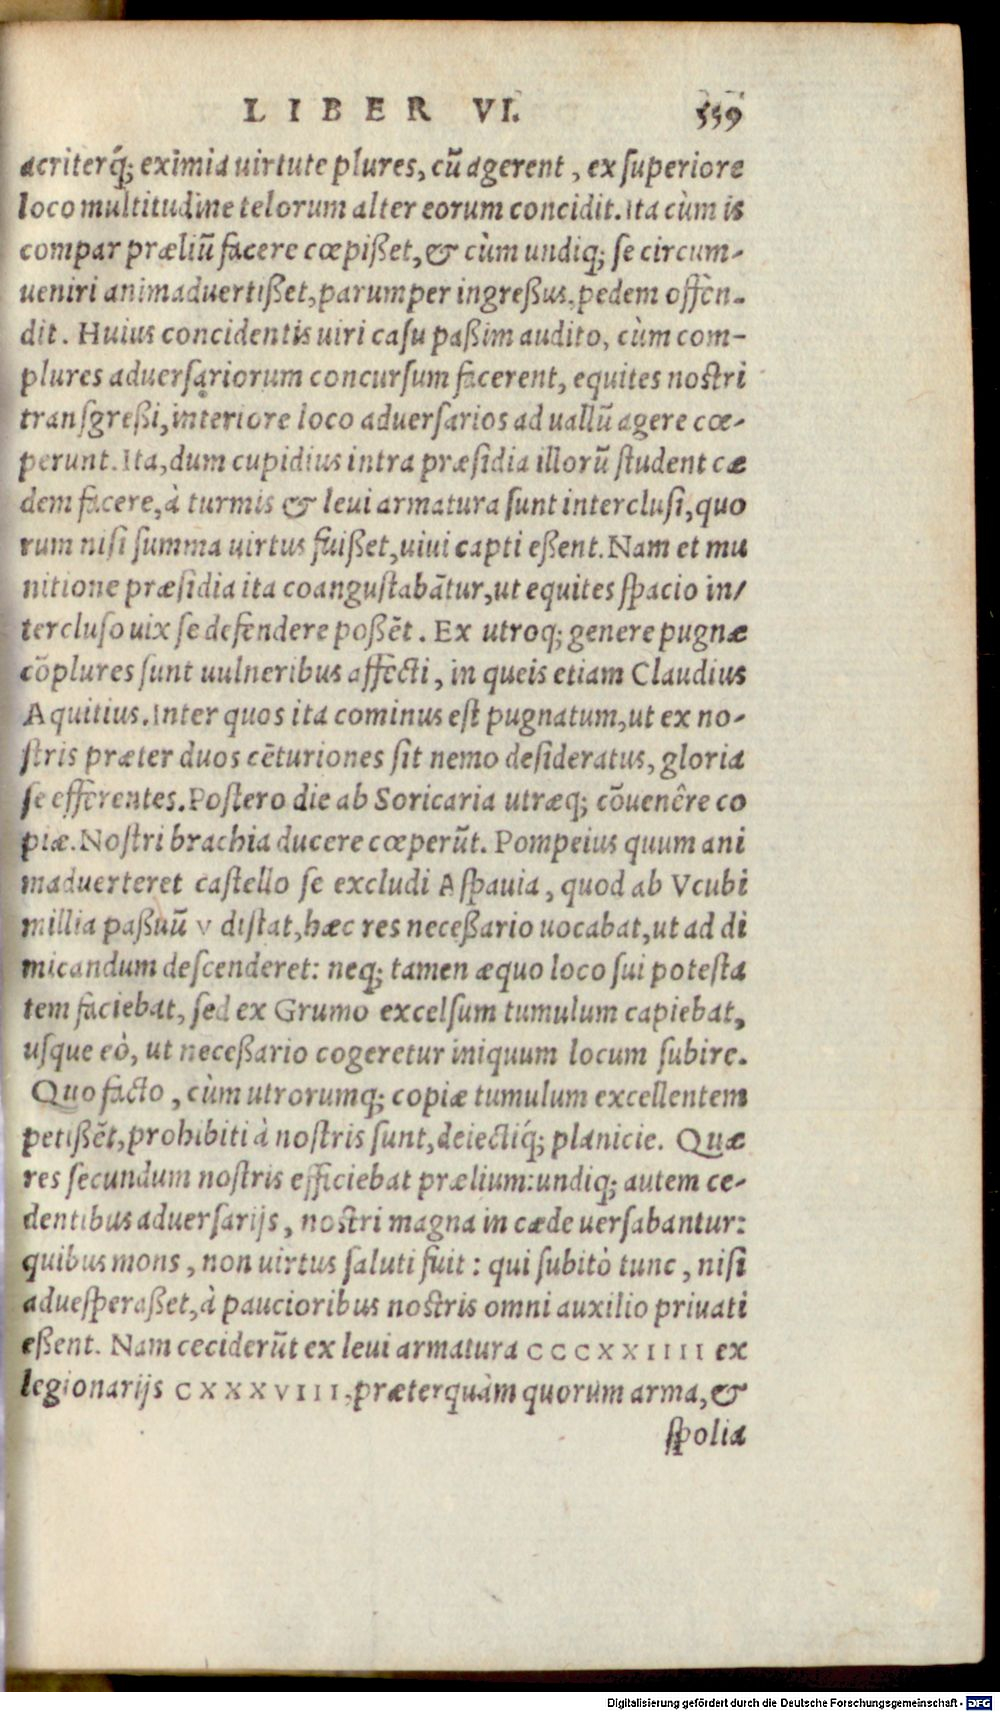 LIBER VI. 559
acriterq́; eximia uirtute plures, cũ agerent, ex ſuperiore
loco multitudine telorum alter eorum concidit. Ita cùm is
compar præliũ facere cœpißet, & cùm undiq; ſe circum-
ueniri animaduertißet, parumper ingreßus, pedem offen-
dit. Huius concidentis uiri caſu paßim audito, cùm com-
plures aduerſariorum concurſum facerent, equites noſtri
tranſgreßi, interiore loco aduerſarios ad uallũ agere cœ-
perunt. Ita, dum cupidius intra præſidia illorũ ſtudent cæ
dem facere, à turmis & leui armatura ſunt intercluſi, quo
rum niſi ſumma uirtus fuißet, uiui capti eßent. Nam et mu
nitione præſidia ita coanguſtabãtur, ut equites ſpacio in/
tercluſo uix ſe defendere poßẽt. Ex utroq; genere pugnæ
cõplures ſunt uulneribus affecti, in queis etiam Claudius
Aquitius. Inter quos ita cominus eſt pugnatum, ut ex no-
ſtris præter duos cẽturiones ſit nemo deſideratus, gloria
ſe efferentes. Poſtero die ab Soricaria utræq; cõuenêre co
piæ. Noſtri brachia ducere cœperũt. Pompeius quum ani
maduerteret caſtello ſe excludi Aſpauia, quod ab Vcubi
millia paßuũ v diſtat, hæc res neceßario uocabat, ut ad di
micandum deſcenderet: neq; tamen æquo loco ſui poteſta
tem faciebat, ſed ex Grumo excelſum tumulum capiebat,
uſque eò, ut neceßario cogeretur iniquum locum ſubire.
Quo facto, cùm utrorumq; copiæ tumulum excellentem
petißẽt, prohibiti à noſtris ſunt, deiectiq́; planicie. Quæ
res ſecundum noſtris efficiebat prælium: undiq; autem ce-
dentibus aduerſarijs, noſtri magna in cæde uerſabantur:
quibus mons, non uirtus ſaluti fuit: qui ſubitò tunc, niſi
adueſperaßet, à paucioribus noſtris omni auxilio priuati
eßent. Nam ceciderũt ex leui armatura CCCXXIIII ex
legionarijs CXXXVIII, præterquàm quorum arma, &
ſpolia
Digitalisierung gefördert durch die Deutsche Forschungsgemeinschaft - DFG